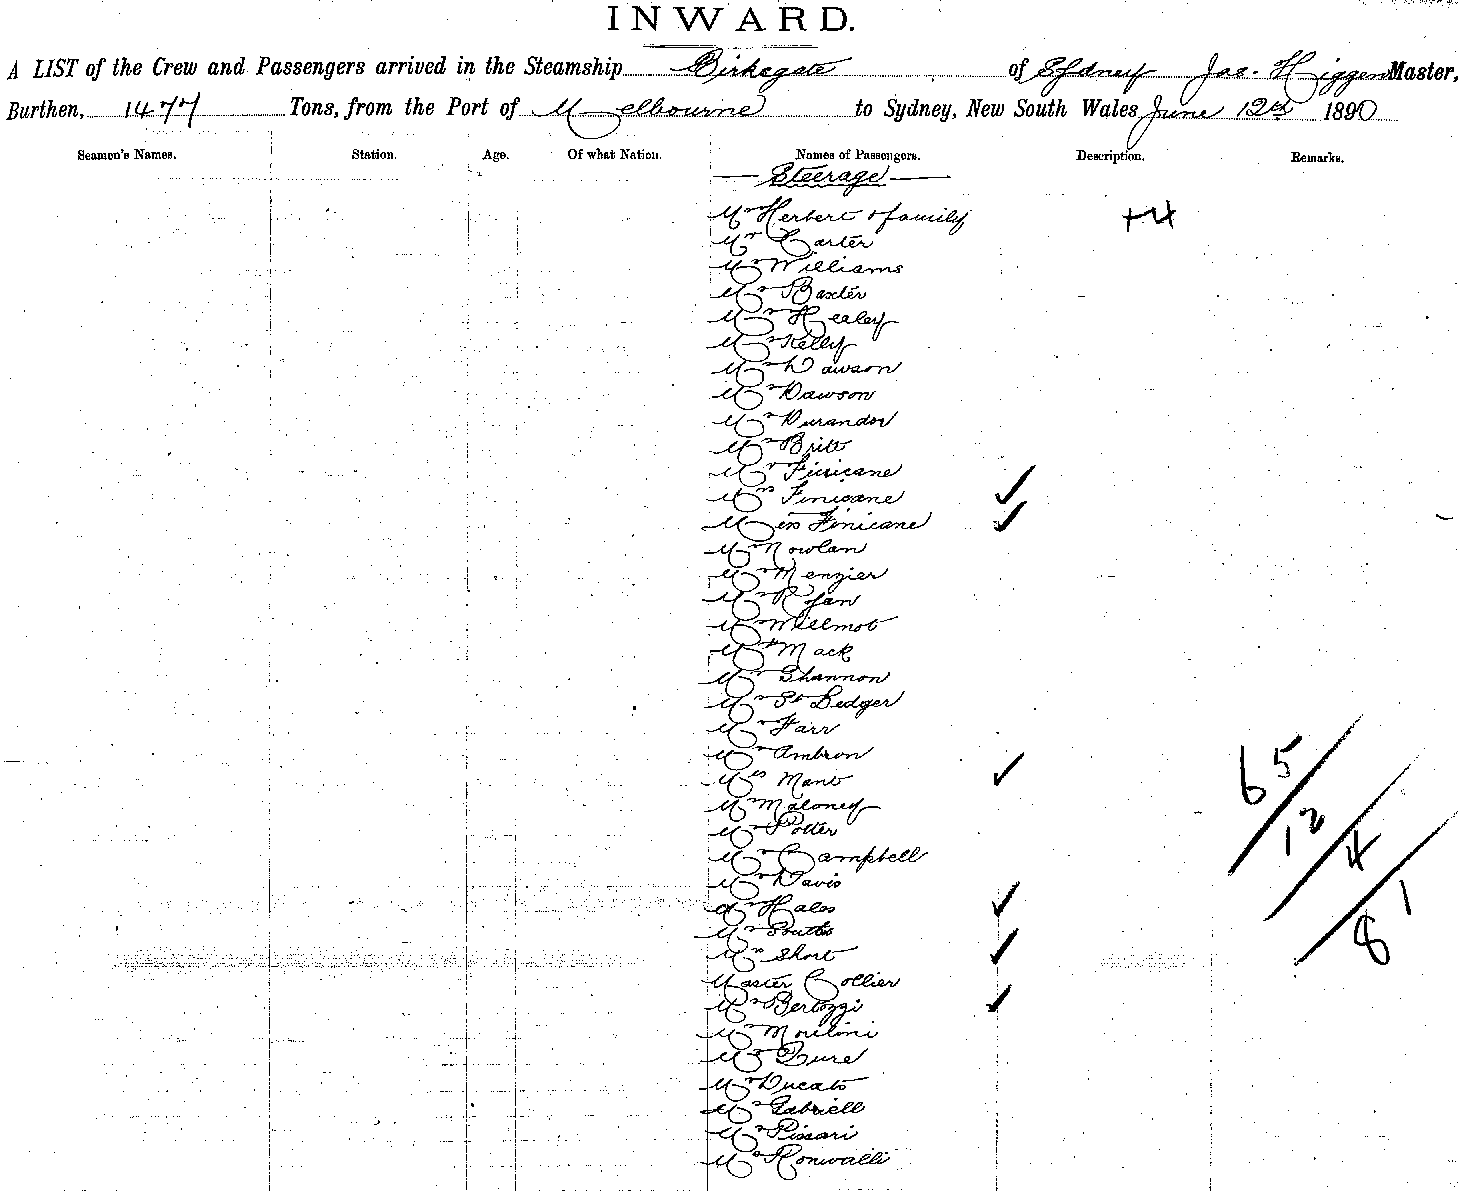 INWARD.
A LIST of the Crew and Passengers arrived in the Steamship Birksgate of Sydney Jas. Higgens Master,
Burthen, 1477 Tons, from the Port of Melbourne to Sydney, New South Wales June 12th 1890
Seamen's Names. Station. Age. Of what Nation. Names of Passengers. Description. Remarks.
Steerage
Mr Herbert & family +4
Mr Carter
Mr Williams
Mr Baxter
Mr Healey
Mr Kelly
Mr Dawson
Mr Dawson
Mr Durandor
Mr Britt
Mr Finicane
Mrs Finicane ✓
Miss Finicane ✓
Mr Nowlan
Mr Menzier
Mr Ryan
Mr Willmot
Mr Mack
Mr Shannon
Mr St Ledger
Mr Farr
Mr Ambron
Mrs Mant ✓
Mr Maloney
Mr Potter
Mr Campbell
Mr Davis
Hales ✓
Mr
Mrs Short ✓
Master Collier
Bertozzi ✓
Mr Moreloni
Mr
Mr Ducato
Mr Gabriell
Mr Pissari
Mr Ronvalli
65/12/4/81